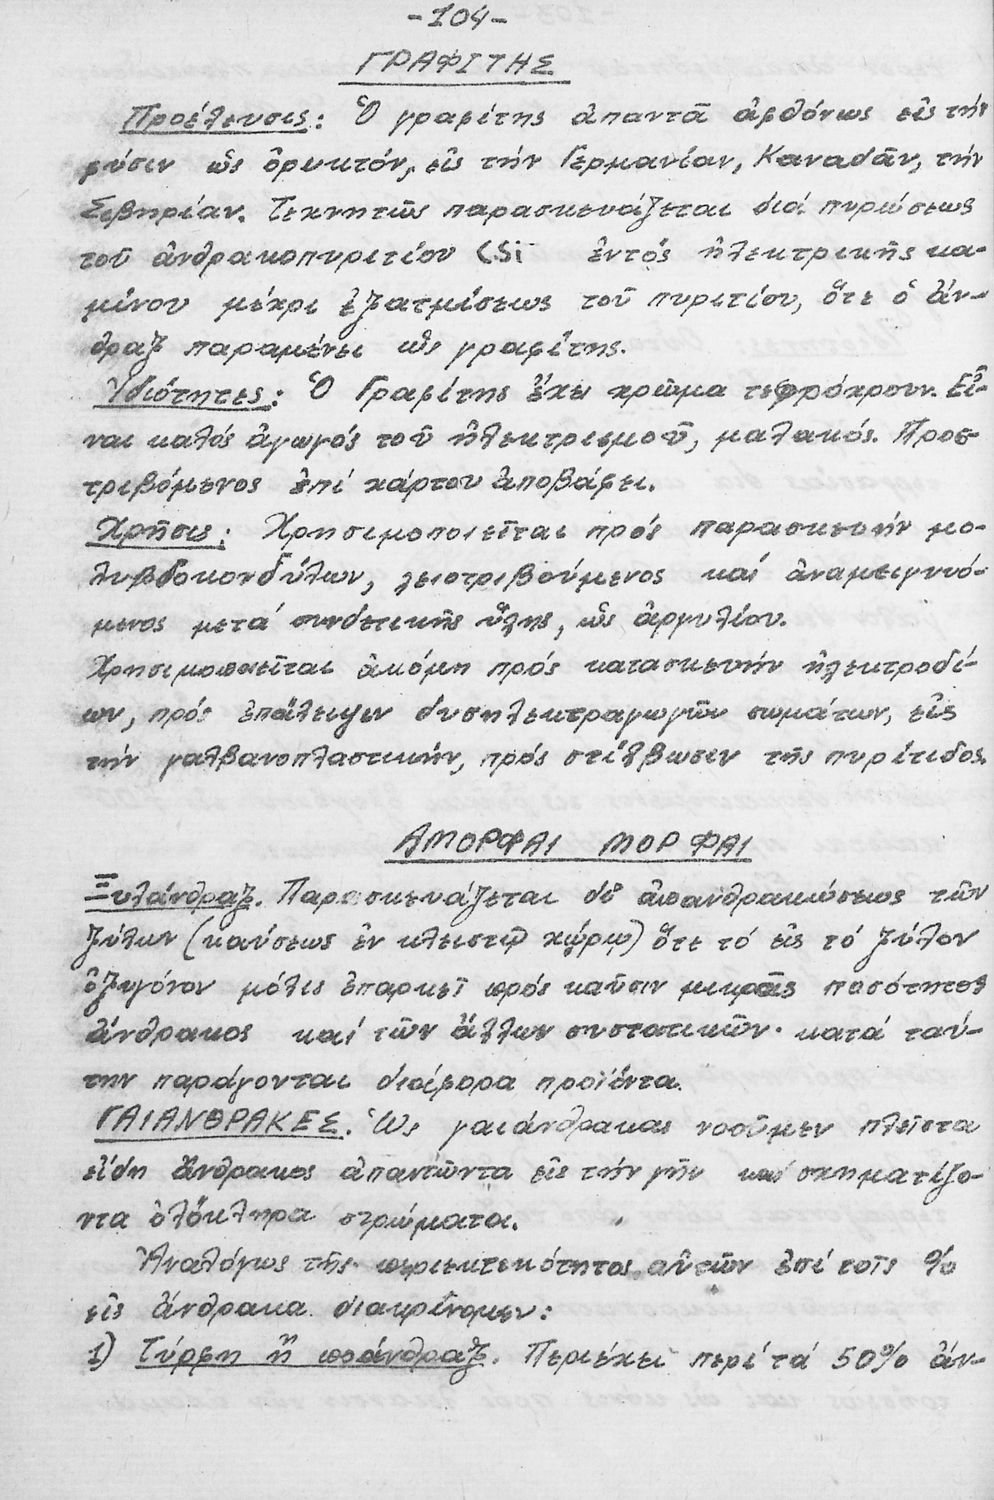 -104-
ΓΡΑΦΙΤΗΣ
Προέλευσις: Ὁ γραφίτης ἀπαντᾶ ἀφθόνως εἰς τήν
φύσιν ὡς ὀρυκτόν, εἰς τήν Γερμανίαν, Καναδᾶν, τήν
Σιβηρίαν. Τεχνητῶς παρασκευάζεται διά πυρώσεως
τοῦ ἀνθρακοπυριτίου CSi ἐντός ἠλεκτρικῆς κα-
μίνου μέχρι ἐξατμίσεως τοῦ πυριτίου, ὅτε ὁ ἄν-
θραξ παραμένει ὡς γραφίτης.
Ἰδιότητες: Ὁ Γραφίτης ἔχει χρῶμα τεφρόχρουν. Εἶ-
ναι καλός ἀγωγός τοῦ ἠλεκτρισμοῦ, μαλακός. Προσ-
τριβόμενος ἐπί χάρτου ἀποβάφει.
Χρῆσις: Χρησιμοποιεῖται πρός παρασκευήν μο-
λυβδοκονδύλων, λειοτριβούμενος καί ἀναμειγνυό-
μενος μετά συνδετικῆς ὕλης, ὡς ἀργυλίου.
Χρησιμοποιεῖται ἀκόμη πρός κατασκευήν ἠλεκτροδί-
ων, πρός ἐπάλειψιν δυσηλεκτραγωγῶν σωμάτων, εἰς
τήν γαλβανοπλαστικήν, πρός στίλβωσιν τῆς πυρίτιδος.
ΑΜΟΡΦΑΙ ΜΟΡΦΑΙ
Ξυλάνθραξ. Παρασκευάζεται δι' ἀπανθρακώσεως τῶν
ξύλων (καύσεως ἐν κλειστῷ χώρῳ) ὅτε τό εἰς τό ξύλον
ὀξυγόνον μόλις ἐπαρκεῖ πρός καῦσιν μικρᾶς ποσότητος
ἄνθρακος καί τῶν ἄλλων συστατικῶν· κατά ταύ-
την παράγονται διάφορα προϊόντα.
ΓΑΙΑΝΘΡΑΚΕΣ. Ὡς γαιάνθρακας νοοῦμεν πλεῖστα
εἴδη ἄνθρακος ἀπαντῶντα εἰς τήν γῆν καί σχηματίζο-
ντα ὁλόκληρα στρώματα.
Ἀναλόγως τῆς περιεκτικότητος αὐτῶν ἐπί τοῖς %
εἰς ἄνθρακα διακρίνομεν:
1) Τύρφη ἤ ποάνθραξ. Περιέχει περί τά 50% ἄν-